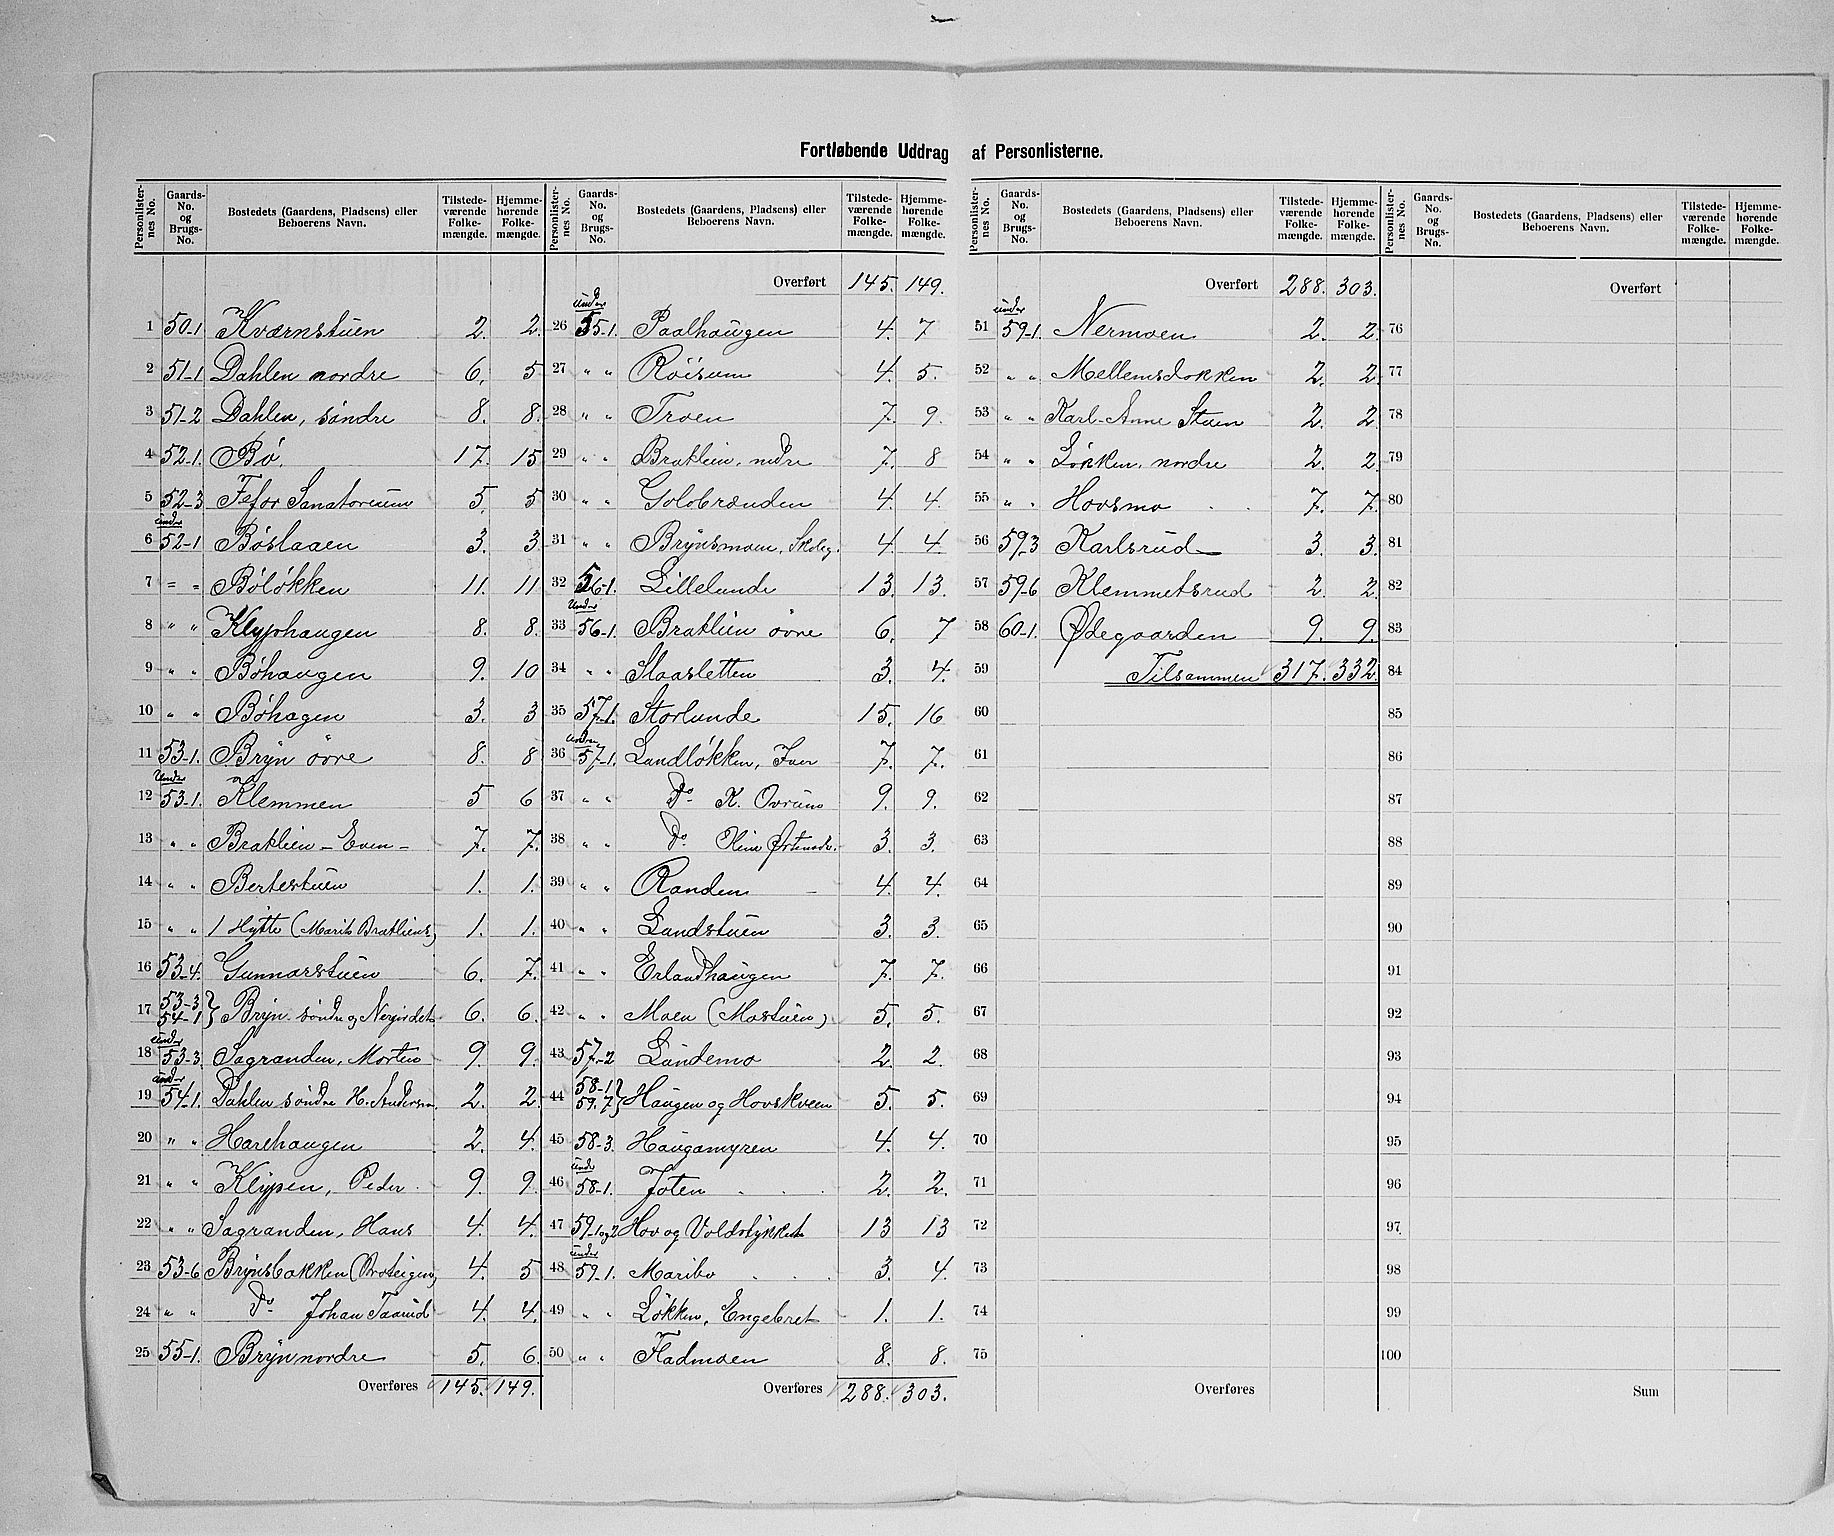 Fortløbende Uddrag af Personlisterne.
Personlisternes No. Gaards-No. og Brugs-No. Bostedets (Gaardens, Pladsens) eller Beboerens Navn. Tilstedeværende Folkemængde. Hjemmehørende Folkemængde.
1 50-1 Kværnstuen 2. 2.
2 51-1 Dahlen nordre 6. 5
3 51-2 Dahlen, søndre 8. 8.
4 52-1. Bø. 17. 15
5 52-3 Fefor Sanatorium 5. 5
6 under 52-1 Bøslaaen 3. 3
7 " " Bøløkken 11. 11
8 " " Klyphaugen 8. 8.
9 " " Bøhaugen 9. 10
10 " " Bøhagen 3. 3
11 53-1. Bryn øvre 8. 8
12 Under 53-1. Klemmen 5 6
13 " " Bratlien - Even - 7. 7.
14 " " Bertestuen 1. 1.
15 " " 1 Hytte (Marit Bratliens) 1. 1.
16 53-4. Gunnarstuen 6. 7.
17 53-3 54-1 } Bryn søndre og Nerjordet 6. 6.
18 under 53-3. Sagranden, Morten 9. 9.
19 under 54-1. Dahlen søndre H. Andersen. 2. 2.
20 " " Harehaugen 2. 4.
21 " " Klypen, Peder. 9. 9.
22 " " Sagranden, Hans 4. 4.
23 53-6 Brynsbakken (Broteigen) 4. 5
24 " " Do Johan Taarud 4. 4.
25 55-1. Bryn nordre 5. 6.
Overføres 145. 149.
Personlisternes No. Gaards-No. og Brugs-No. Bostedets (Gaardens, Pladsens) eller Beboerens Navn. Tilstedeværende Folkemængde. Hjemmehørende Folkemængde.
Overført 145. 149.
26 under 55-1. Paalhaugen 4. 7
27 " " Røisum 4. 5.
28 " " Troen 7. 9.
29 " " Bratlien, nedre 7. 8
30 " " Golobrænden 4. 4.
31 " " Brynsmoen, Skoleg. 4 4.
32 56-1. Lillelunde 13. 13.
33 Under 56-1. Bratlien øvre 6. 7
34 " " Slaasletten 3. 4.
35 57-1. Storlunde 15. 16
36 Under 57-1. Lundløkken, Iver 7. 7.
37 " " Do K. Ovrum 9. 9.
38 " " Do 3. 3.
39 " " Randen 4. 4.
40 " " Lundstuen 3. 3.
41 " " Erlandhaugen 7. 7.
42 " " Moen (Mostuen) 5. 5.
43 57-2 Lundemo 2. 2.
44 58-1 59.7 } Haugen og Hovskveen 5. 5.
45 58-3. Haugamyren 4. 4.
46 und 58-1. Joten 2. 2.
47 59-1og2 Hov og Voldstykket 13 13
48 under 59-1. Maribo 3. 4.
49 " " Løkken, Engebret 1. 1.
50 " " Fladmoen 8. 8.
Overføres 288. 303.
Personlisternes No. Gaards-No. og Brugs-No. Bostedets (Gaardens, Pladsens) eller Beboerens Navn. Tilstedeværende Folkemængde. Hjemmehørende Folkemængde.
Overført 288. 303.
51 under 59-1. Nermoen 2. 2.
52 " " Mellemsløkken 2. 2
53 " " Karl-Anne Stuen 2. 2
54 " " Løkken, nordre 2. 2.
55 " " Hovsmo 7. 7.
56 59-3 Karlsrud 3. 3.
57 59-6 Klemmetsrud 2 2.
58 60-1. Ødegaarden 9. 9.
59 Tilsammen 317. 332.
60
61
62
63
64
65
66
67
68
69
70
71
72
73
74
75
Overføres
Personlisternes No. Gaards-No. og Brugs-No. Bostedets (Gaardens, Pladsens) eller Beboerens Navn. Tilstedeværende Folkemængde. Hjemmehørende Folkemængde.
Overført
76
77
78
79
80
81
82
83
84
85
86
87
88
89
90
91
92
93
94
95
96
97
98
99
100
Sum